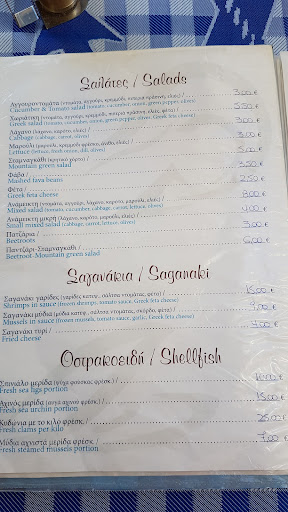 Σαλάτες / Salads
Αγγουροντομάτα (ντομάτα, αγγούρι, κρεμμύδι, πιπεριά πράσινη, ελιες) / 3,00 €
Cucumber & Tomato salad (tomato, cucumber, onion, green pepper, olives)
Χωριάτικη (ντομάτα, αγγούρι, κρεμμύδι, πιπεριά πράσινη, φέτα, ελιες) / 5,50 €
Greek salad (tomato, cucumber, onion, green pepper, olives, Greek feta cheese)
Λάχανο (λάχανο, καρότο, ελιες) / 3,00 €
Cabbage (cabbage, carrot, olives)
Μαρούλι (μαρούλι, κρεμμύδι φρέσκο, άνιθο, ελιες) / 3,00 €
Lettuce (lettuce, fresh onion, dill, olives)
Σταμναγκάθι (ορεινό χόρτο) / 5,00 €
Mountain green salad
Φάβα / 3,50 €
Mashed fava beans
Φέτα / 2,50 €
Greek feta cheese
Ανάμεικτη (ντομάτα, αγγούρι, λάχανο, καρότο, μαρούλι, ελιες) / 8,00 €
Mixed salad (tomato, cucumber, cabbage, carrot, lettuce, olives)
Ανάμεικτη μικρή (λάχανο, καρότο, μαρούλι, ελιες) / 4,00 €
Small mixed salad (cabbage, carrot, lettuce, olives)
Πατζάρια / 3,00 €
Beetroots
Παντζάρι-Σταμναγκαθι / 6,00 €
Beetroot-Mountain green salad
Σαγανάκια / Saganaki
Σαγανάκι γαρίδες (γαρίδες κατεψ., σάλτσα ντομάτας, σκόρδο, φέτα) /
Shrimps in sauce (frozen shrimps, tomato sauce, garlic, Greek feta cheese)
Σαγανάκι μύδια (μύδια κατεψ., σάλτσα ντομάτας, σκόρδο, φέτα) / 9,00 €
Mussels in sauce (frozen mussels, tomato sauce, garlic, Greek feta cheese)
Σαγανάκι τυρί / 4,00 €
Fried cheese
Οστρακοειδή / Shellfish
Σπινιάλο μερίδα (αυγο φούσκας φρέσκ.) /
Fresh sea figs portion
Αχινός μερίδα (αυγό αχινού φρέσκ.) /
Fresh sea urchin portion
Κυδώνια με το κιλό φρέσκ. / 25,00 €
Fresh clams per kilo
Μύδια αχνιστά μερίδα φρέσκ. / 7,00 €
Fresh steamed mussels portion